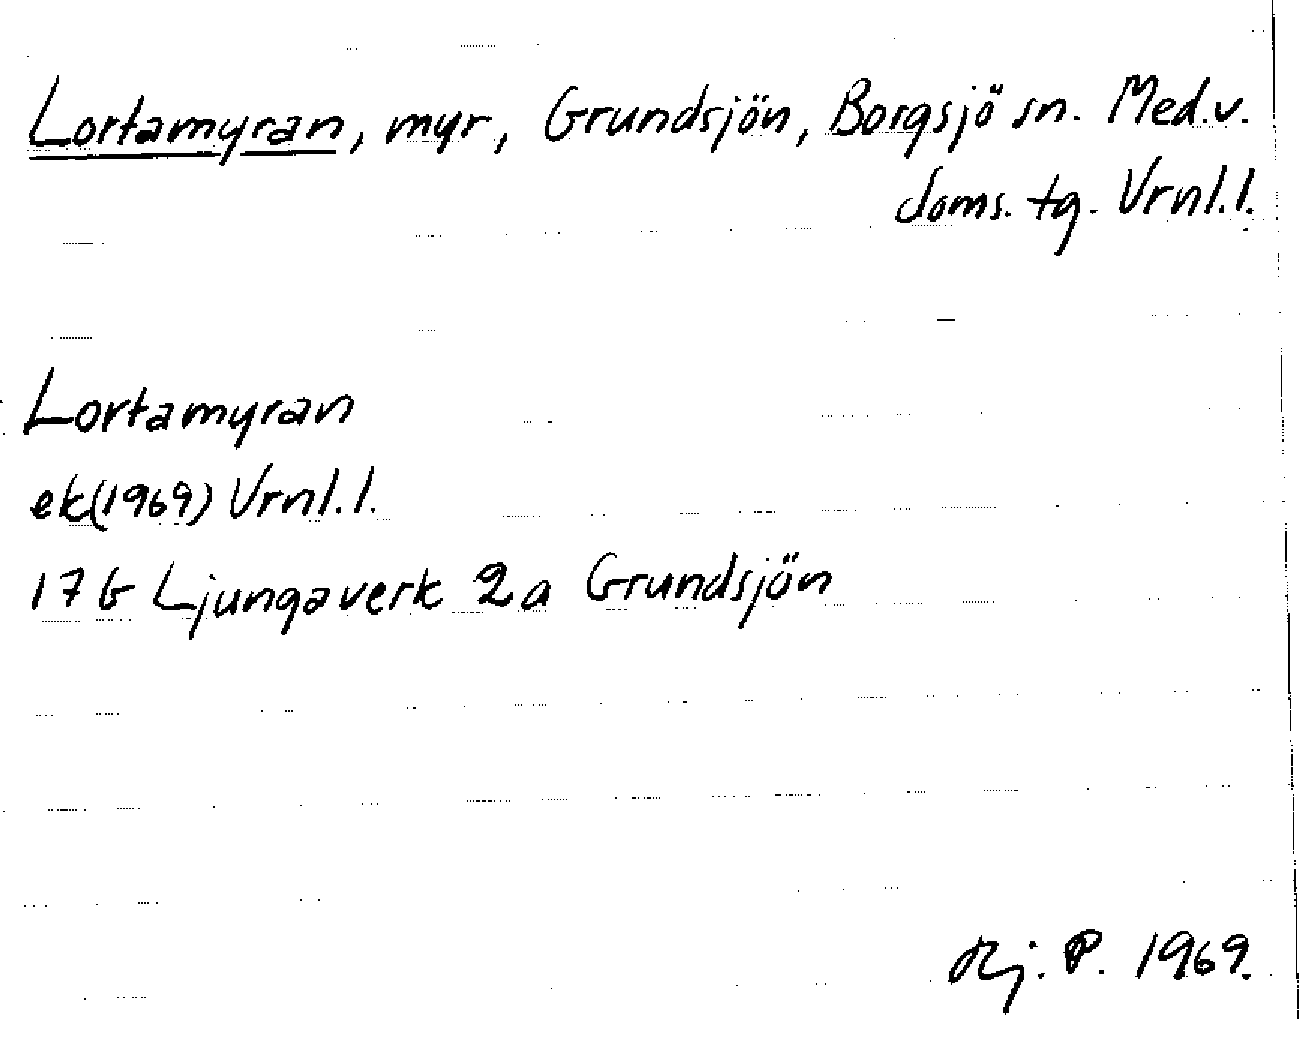 Lortamyran, myr, Grundsjön, Borgsjö sn. Med.v.
doms. tg. Vrnl.l.
Lortamyran
ek(1969) Vrnl.l.
17G Ljungaverk 2a Grundsjön
P. 1969.